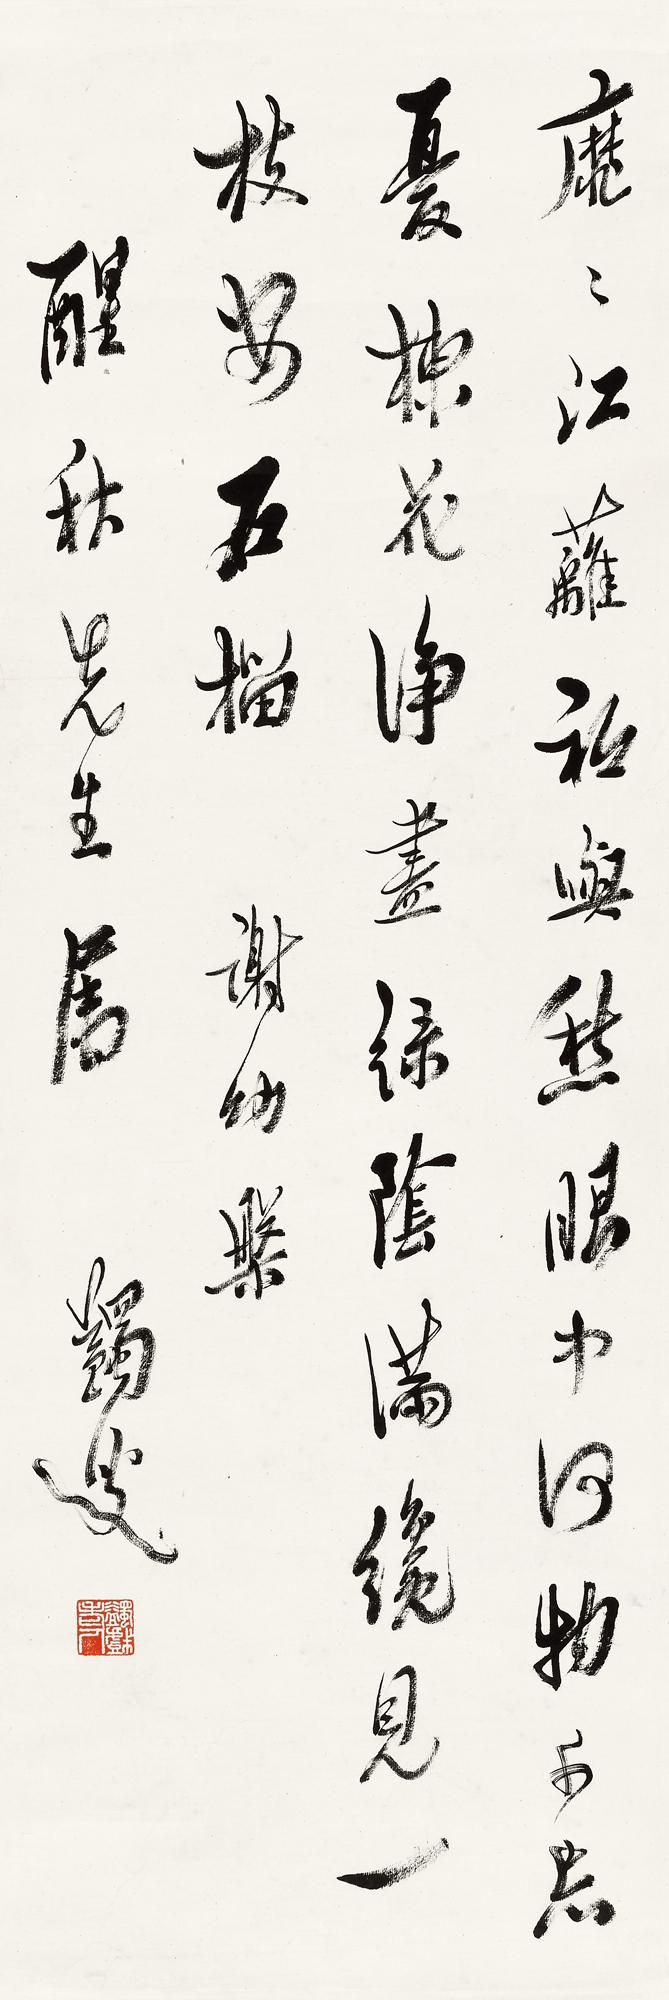 靡〻江蘺祗與愁眼中何物可忘
憂楝花淨盡綠陰滿纔見一
枝安石榴 謝幼槃
醒秋先生屬 蠲叟